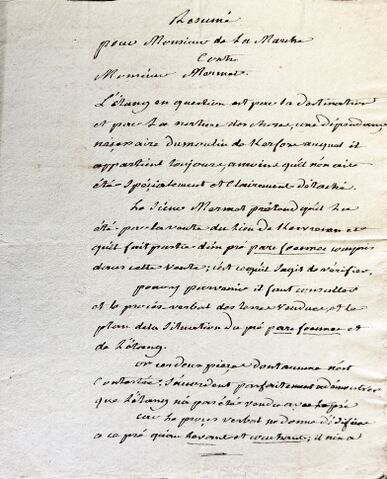 Resumé
pour Monsieur de La Marche
Contre
Monsieur Mermet.
L'étang en question est par la destination
et par la nature des choses, une dépendance
necessaire du moulin de auquel il
appartient toujours, a moins qu'il n'en ait
été spécialement et clairement détaché.
Le Sieur Mermet prétend qu'il l'a
été par la vente du lieu de et
qu'il fait partie d'un pré compris
dans cette vente; c'est ce qu'il s'agit de vérifier.
pour y parvenir il faut consulter
et le procès verbal des terres vendues et le
plan de la situation du pré et
de l'étang.
or ces deux pieces dont aucune n'est
Contestée, s'accordent parfaitement a démontrer
que l'étang n'a pas été vendu avec le pré
car le procès verbal ne donne d'édifice
a ce pré qu'au levant et couchant; il n'en a